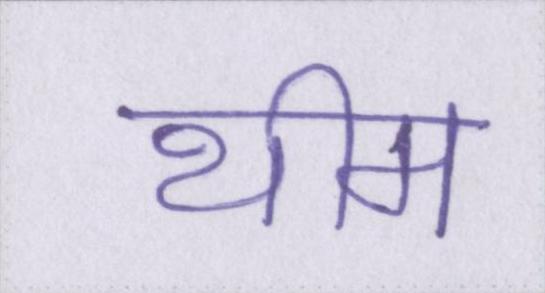 थीम